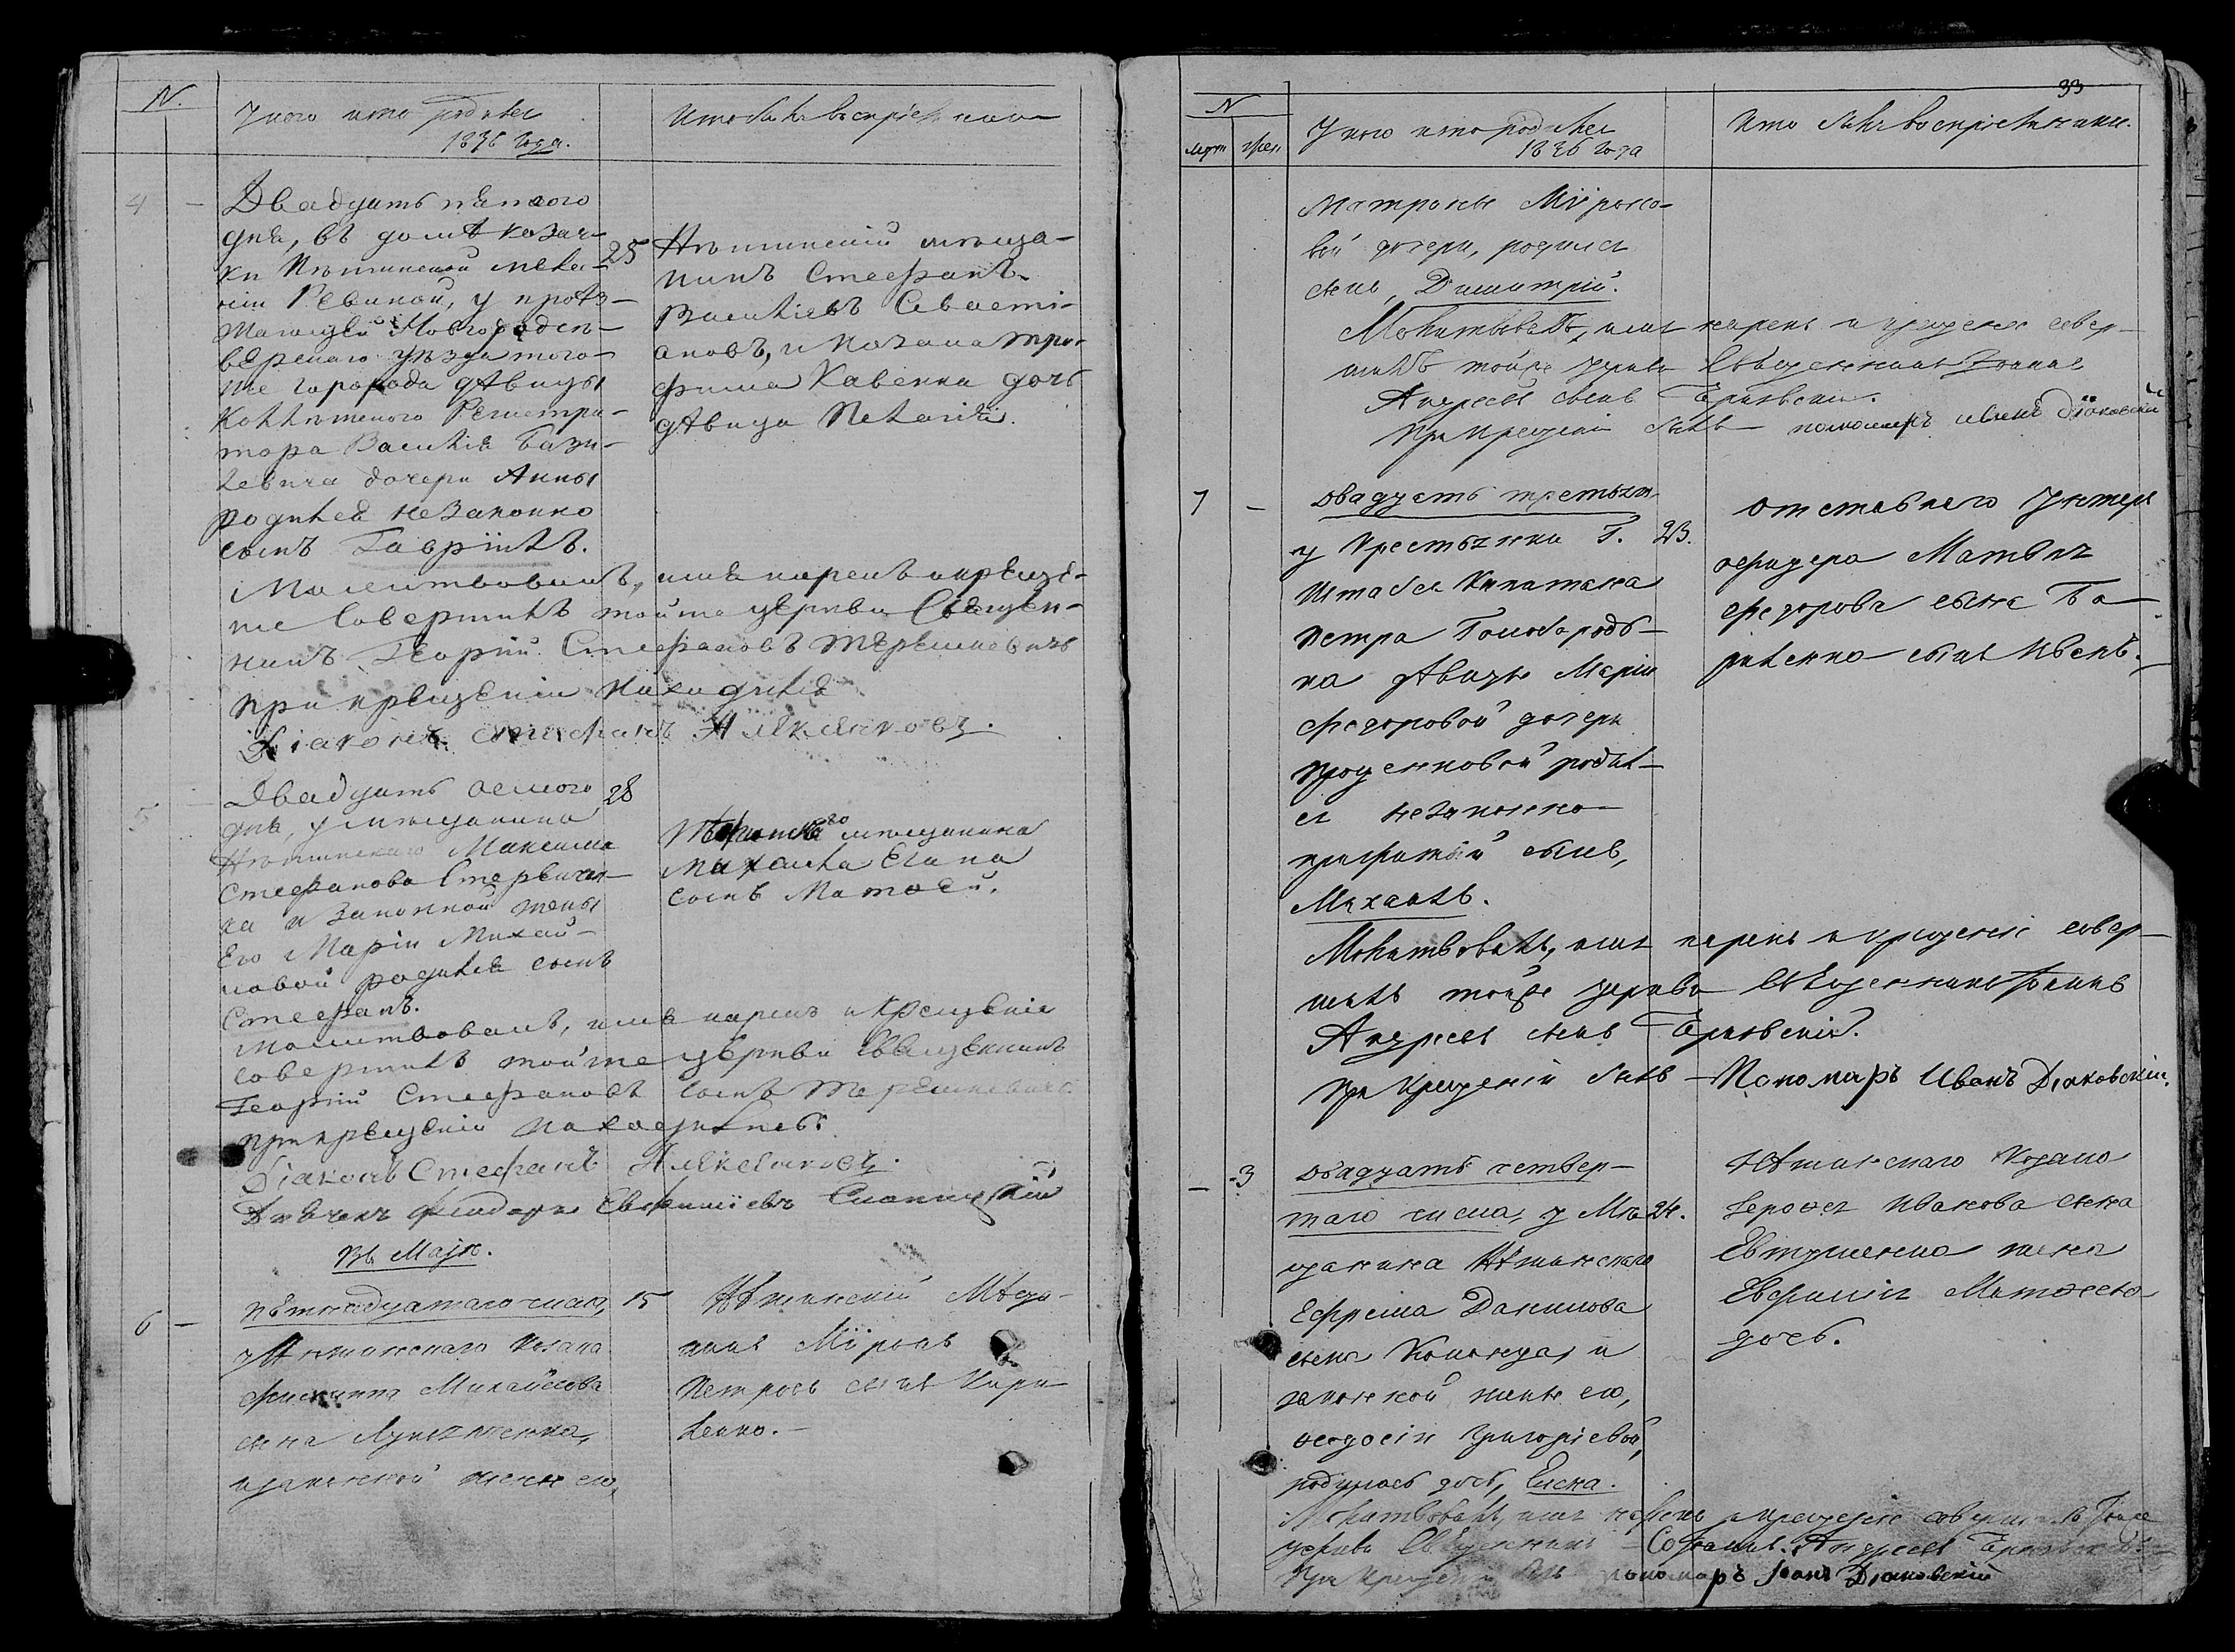 N.
У кого кто родился
1836 года.
Кто были воспріемники
4 —
Двадцать пятого
дня, въ домѣ козач-
ки Нѣжинской Мела-
ніи Ревиной, у проѣз-
жающей Новгородсѣ-
верскаго уѣзда того-
же города дѣвицы
Коллѣжского Регистра-
тора Василія Бази-
левича дочери Анны
родился незаконно
сынъ Гавріилъ.
25
Нѣжинскій мѣща-
нинъ Стефанъ
Василіевъ Севасті-
ановъ, и козака Тро-
фима Кавенки дочь
дѣвица Пелагія.
Молитвовалъ, имя нарекъ и креще-
ніе совершилъ тойже церкви Священ-
никъ Георгій Стефановъ Терешкевичъ
при крещеніи находился
Діаконъ Стефанъ
5 —
Двадцать осмого
28
дня, у мѣщанина
Нѣжинскаго Максима
Стефанова
ка и Законной жены
Его Маріи Михай-
ловой родился сынъ
Стефанъ.
мѣщанина
Михаила
сынъ Матѳей.
Молитвовалъ, имя нарекъ и Крещеніе
совершилъ тойже церкви Священникъ
Георгій Стефановъ сынъ Терешкевичъ
при крещеніи находились:
Діаконъ Стефанъ
Дьячекъ Феодоръ Евфиміевъ
Въ Маѣ.
6 —
пятнадцатаго числа,
15
у Нѣжинскаго Козака
Филиппа Михайлова
сына
и законной жены его,
Нѣжинскій Мѣща-
нинъ Міронъ
Петровъ сынъ Кири-
ленко.
33
N
муж. жен.
У кого кто родился
1836 года
Кто были воспріемники.
Матроны Міроно-
вой дочери, родился
сынъ, Димитрій.
Молитвовалъ, имя нарекъ и крещеніе совер-
шилъ тойже церкви Священникъ Іоаннъ
Андреевъ сынъ
При Крещеніи былъ — пономарь Иванъ Діаковскій
7 —
Двадцать третьяго
у Крестьянки Г.
23.
Штабсъ Капитана
Петра Голобородь-
ка дѣвицы Маріи
Федоровой дочери
Проценковой родил-
ся незаконно-
прижитый сынъ,
Михаилъ.
отставнаго Унтеръ
офицера Матвѣя
Федорова сына
сынъ Иванъ.
Молитвовалъ, имя нарекъ и крещеніе совер-
шилъ тойже церкви Священникъ Іоаннъ
Андреевъ сынъ
При Крещеніи былъ — Пономарь Иванъ Діаковскій.
— 3
Двадцать четвер-
таго числа, у Мѣ-
24.
щанина Нѣжинскаго
Ефрема Данилова
сына и
законной жены его,
Ѳеодосіи Григоріевой,
родилась дочь, Елена.
Нѣжинскаго Козака
Іероѳея Иванова сына
Евтушенка жена
Евфимія Матѳеева
дочь.
Молитвовалъ, имя нарекъ и крещеніе совершилъ тойже
церкви Священникъ Іоаннъ Андреевъ
При Крещеніи былъ пономарь Іоанъ Діаковскій